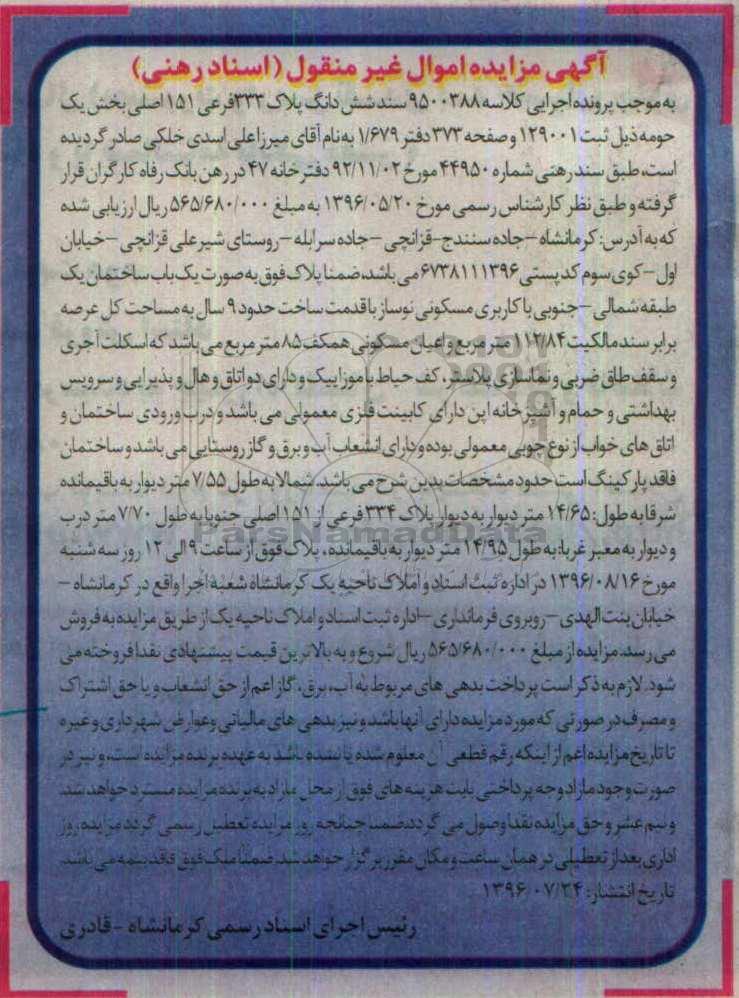 آگهی مزایده اموال غیر منقول (اسناد رهنی)
به موجب پرونده اجرایی کلاسه ۹۵۰۰۳۸۸ سند شش دانگ پلاک ۳۳۳ فرعی ۱۵۱ اصلی بخش یک
حومه ذیل ثبت ۱۲۹۰۰۱ و صفحه ۳۷۳ دفتر ۱/۶۷۹ به نام آقای میرزاعلی اسدی خلکی صادر گردیده
است، طبق سند رهنی شماره ۴۴۹۵۰ مورخ ۹۲/۱۱/۰۲ دفترخانه ۴۷ در رهن بانک رفاه کارگران قرار
گرفته و طبق نظر کارشناس رسمی مورخ ۱۳۹۶/۰۵/۲۰ به مبلغ ۵۶۵/۶۸۰/۰۰۰ ریال ارزیابی شده
که به آدرس: کرمانشاه - جاده سنندج - قزانچی - جاده سرابله - روستای شیرعلی قزانچی - خیابان
اول - کوی سوم کد پستی ۶۷۳۸۱۱۱۳۹۶ می باشد، ضمنا پلاک فوق به صورت یک باب ساختمان یک
طبقه شمالی - جنوبی با کاربری مسکونی نوساز با قدمت ساخت حدود ۹ سال به مساحت کل عرصه
برابر سند مالکیت ۱۱۲/۸۴ متر مربع و اعیان مسکونی همکف ۸۵ متر مربع می باشد که اسکلت آجری
و سقف طاق ضربی و نماسازی پلاستر، کف حیاط با موزاییک و دارای دو اتاق و هال و پذیرایی و سرویس
بهداشتی و حمام و آشپزخانه اپن دارای کابینت فلزی معمولی می باشد و درب ورودی ساختمان و
اتاق های خواب از نوع چوبی معمولی بوده و دارای انشعاب آب و برق و گاز روستایی می باشد و ساختمان
فاقد پارکینگ است حدود مشخصات بدین شرح می باشد. شمالا به طول ۷/۵۵ متر دیوار به باقیمانده
شرقا به طول: ۱۴/۶۵ متر دیوار به دیوار پلاک ۳۳۴ فرعی از ۱۵۱ اصلی جنوبا به طول ۷/۷۰ متر درب
و دیوار به معبر غربا: به طول ۱۴/۹۵ متر دیوار به باقیمانده، پلاک فوق از ساعت ۹ الی ۱۲ روز سه شنبه
مورخ ۱۳۹۶/۰۸/۱۶ در اداره ثبت اسناد و املاک ناحیه یک کرمانشاه شعبه اجرا واقع در کرمانشاه -
خیابان بنت الهدی - روبروی فرمانداری - اداره ثبت اسناد و املاک ناحیه یک از طریق مزایده به فروش
می رسد. مزایده از مبلغ ۵۶۵/۶۸۰/۰۰۰ ریال شروع و به بالاترین قیمت پیشنهادی نقدا فروخته می
شود. لازم به ذکر است پرداخت بدهی های مربوط به آب، برق، گاز اعم از حق انشعاب و یا حق اشتراک
و مصرف در صورتی که مورد مزایده دارای آنها باشد و نیز بدهی های مالیاتی و عوارض شهرداری و غیره
تا تاریخ مزایده اعم از اینکه رقم قطعی آن معلوم شده یا نشده باشد به عهده برنده مزایده است، و نیز در
صورت وجود مازاد وجه پرداختی بابت هزینه های فوق از محل مازاد به برنده مزایده مسترد خواهد شد
و نیم عشر و حق مزایده نقدا وصول می گردد. ضمنا چنانچه روز مزایده تعطیل رسمی گردد مزایده روز
اداری بعد از تعطیلی در همان ساعت و مکان مقرر برگزار خواهد شد. ضمنا ملک فوق فاقد بیمه می باشد
تاریخ انتشار: ۱۳۹۶/۰۷/۲۴
رئیس اجرای اسناد رسمی کرمانشاه - قادری
ParsNamadData